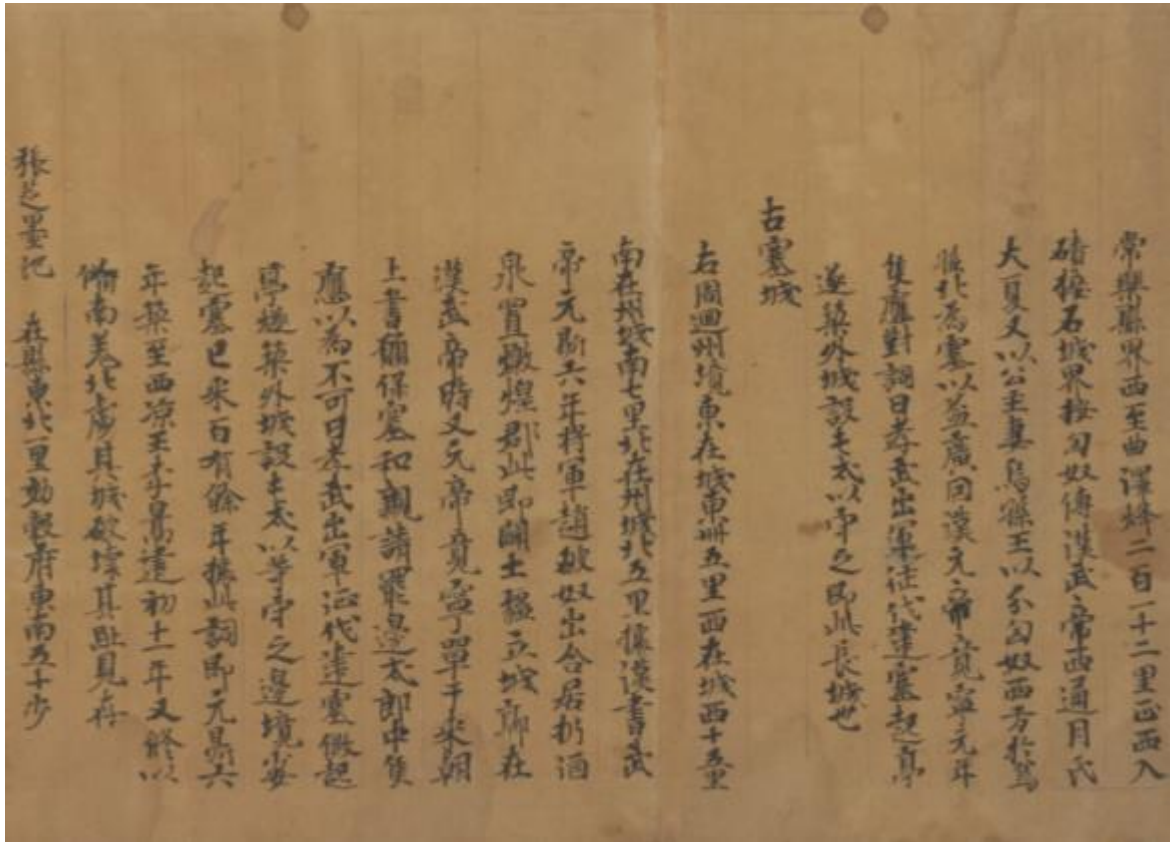 常樂縣界西至曲澤烽二百一十二里正西入
磧接石城界按匈奴傳漢武帝西通月氏
大夏又以公主妻烏孫王以分匈奴西方於烏
孫北為塞以益廣田漢元帝竟寧元年
侯應對詞曰孝武出軍征伐建塞起亭
遂築外城設屯戍以守之即此長城也
古塞城
右周迴州境東在城東卌五里西在城西十五里
南在州城南七里北在州城北五里據漢書武
帝元鼎六年將軍趙破奴出令居析酒
泉置燉煌郡此即闢土疆立城郭在
漢武帝時又元帝竟寧單于來朝
上書願保塞和親請罷邊戍郎中侯
應以為不可曰孝武出軍征伐建塞徼起
亭燧築外城設屯戍以守之邊境安
起塞已來百有餘年據此詞即元鼎六
年築至西涼王李暠建初十一年又修以
備南羌北虜其城破壞其趾見存
張芝墨池 在縣東北一里効穀府東南五十步